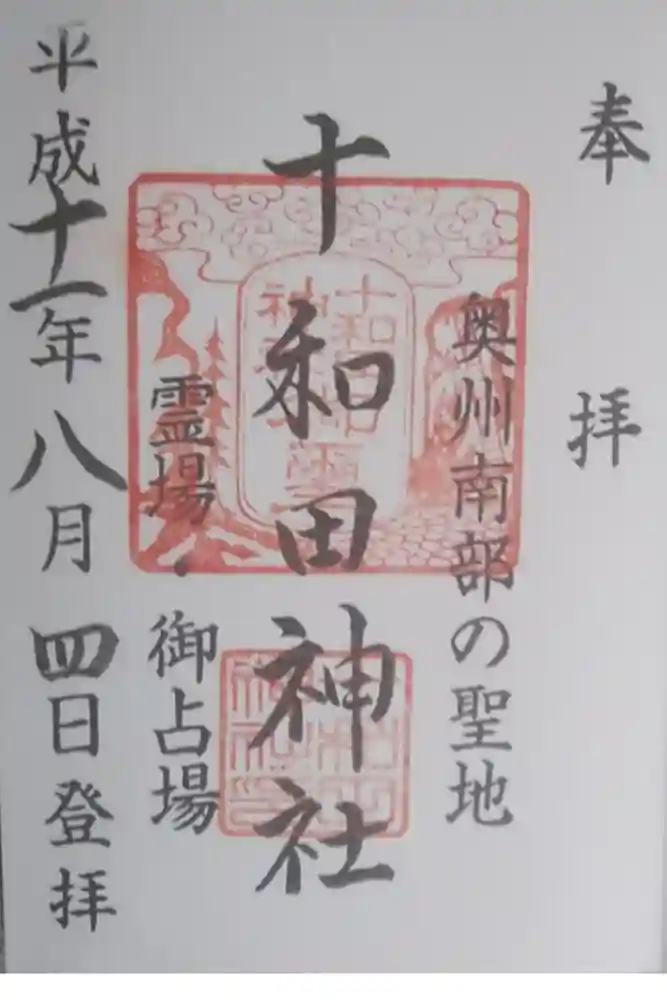 奉拝
奥州南部の聖地
十和田神社
霊場・御占場
平成十一年八月四日登拝